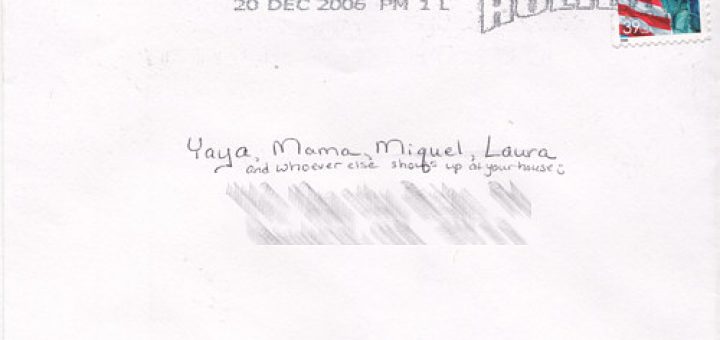 20 DEC 2006 PM 1 L
39
Yaya, Mama, Miguel, Laura
and whoever else shows up at your house :)